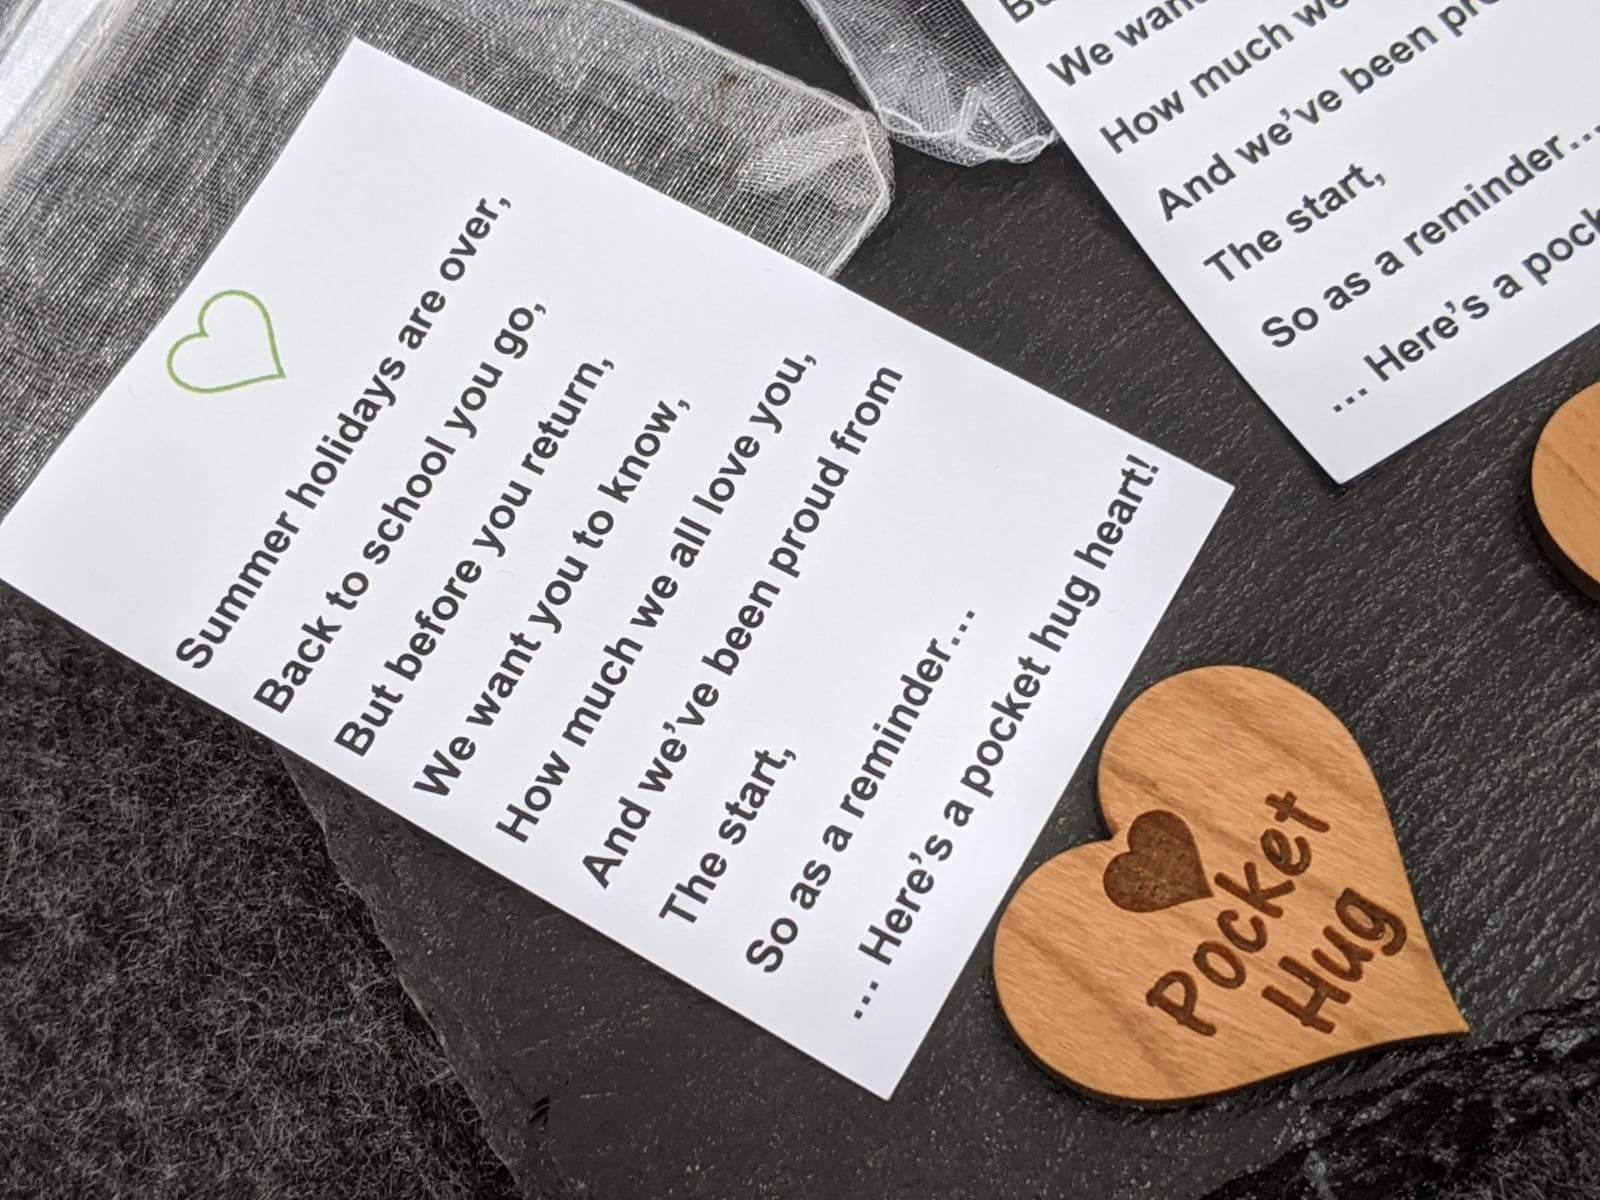 Summer holidays are over,
Back to school you go,
But before you return,
We want you to know,
How much we all love you,
And we've been proud from
The start,
So as a reminder…
… Here's a pocket hug heart!
Pocket
Hug
We want
How much we
And we've been
The start,
So as a reminder…
… Here's a